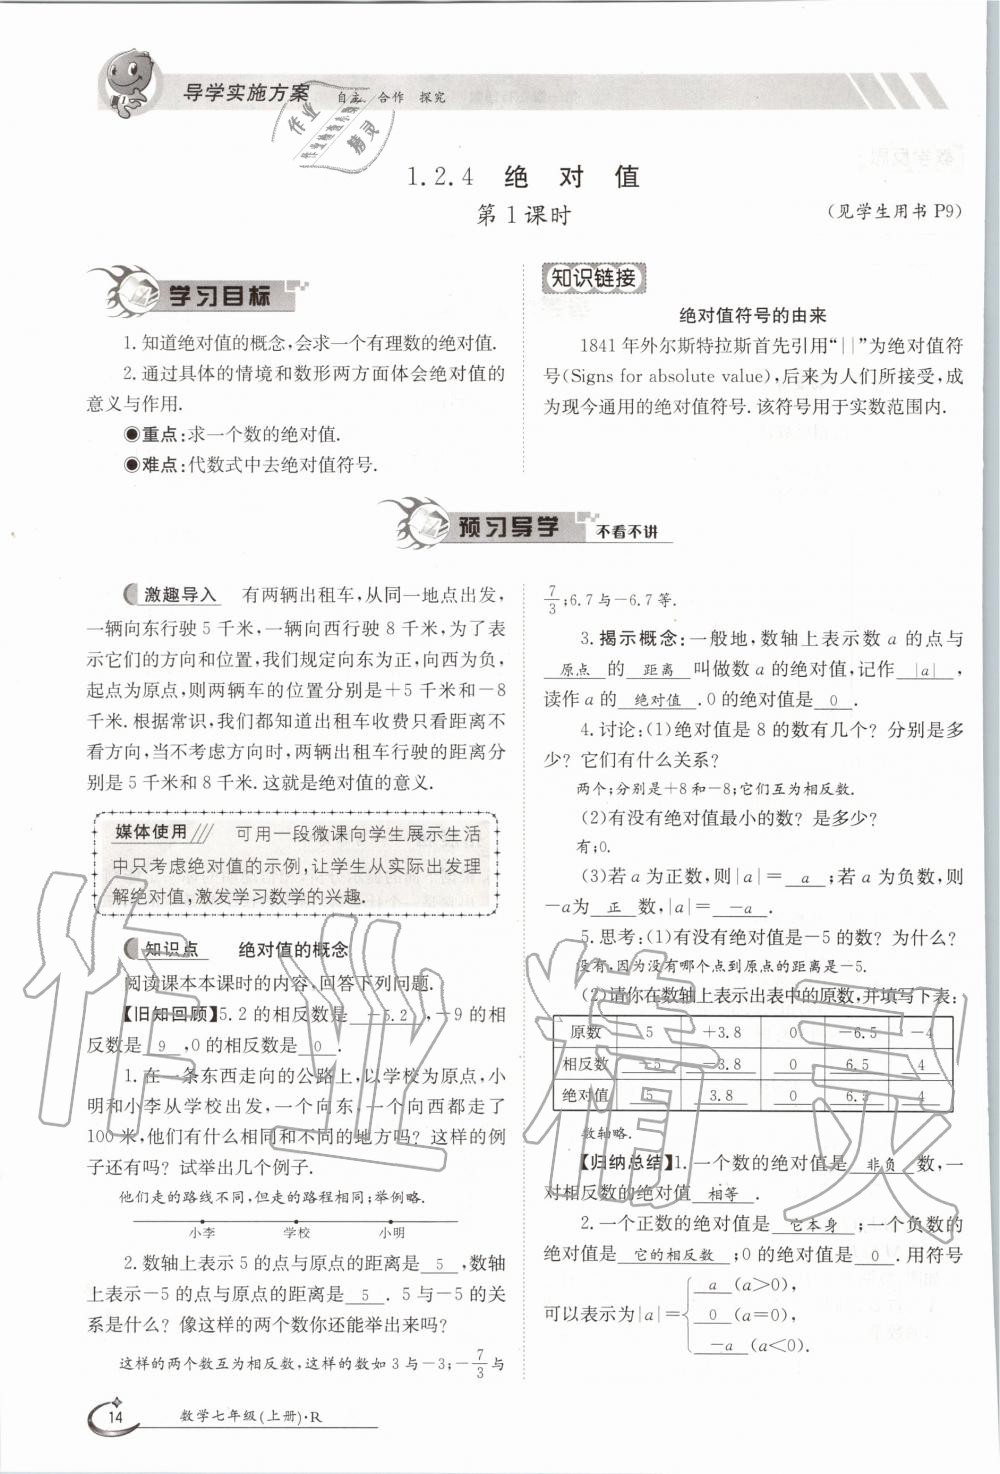 导学实施方案 自主 合作 探究
1.2.4 绝 对 值
第1课时
(见学生用书 P9)
学习目标
1. 知道绝对值的概念,会求一个有理数的绝对值.
2. 通过具体的情境和数形两方面体会绝对值的
意义与作用.
◉重点:求一个数的绝对值.
◉难点:代数式中去绝对值符号.
知识链接
绝对值符号的由来
1841年外尔斯特拉斯首先引用“||”为绝对值符
号(Signs for absolute value),后来为人们所接受,成
为现今通用的绝对值符号.该符号用于实数范围内.
预习导学 不看不讲
激趣导入 有两辆出租车,从同一地点出发,
一辆向东行驶5千米,一辆向西行驶8千米,为了表
示它们的方向和位置,我们规定向东为正,向西为负,
起点为原点,则两辆车的位置分别是+5千米和-8
千米.根据常识,我们都知道出租车收费只看距离不
看方向,当不考虑方向时,两辆出租车行驶的距离分
别是5千米和8千米.这就是绝对值的意义.
媒体使用 可用一段微课向学生展示生活
中只考虑绝对值的示例,让学生从实际出发理
解绝对值,激发学习数学的兴趣.
知识点 绝对值的概念
阅读课本本课时的内容,回答下列问题.
【旧知回顾】5.2的相反数是 -5.2 ,-9的相
反数是 9 ,0的相反数是 0 .
1. 在一条东西走向的公路上,以学校为原点,小
明和小李从学校出发,一个向东、一个向西都走了
100米,他们有什么相同和不同的地方吗?这样的例
子还有吗?试举出几个例子.
他们走的路线不同,但走的路程相同;举例略.
小李 学校 小明
2. 数轴上表示5的点与原点的距离是 5 ,数轴
上表示-5的点与原点的距离是 5 .5与-5的关
系是什么?像这样的两个数你还能举出来吗?
这样的两个数互为相反数,这样的数如3与-3;-7/3与
7/3;6.7与-6.7等.
3. 揭示概念:一般地,数轴上表示数a的点与
原点 的 距离 叫做数a的绝对值,记作 |a| ,
读作a的 绝对值 .0的绝对值是 0 .
4. 讨论:(1)绝对值是8的数有几个?分别是多
少?它们有什么关系?
两个;分别是+8和-8;它们互为相反数.
(2)有没有绝对值最小的数?是多少?
有;0.
(3)若a为正数,则|a|= a ;若a为负数,则
-a为 正 数,|a|= -a .
5. 思考:(1)有没有绝对值是-5的数?为什么?
没有,因为没有哪个点到原点的距离是-5.
(2)请你在数轴上表示出表中的原数,并填写下表:
原数 5 +3.8 0 -6.5 -4
相反数 -5 -3.8 0 6.5 4
绝对值 5 3.8 0 6.5 4
数轴略.
【归纳总结】1. 一个数的绝对值是 非负 数,一
对相反数的绝对值 相等 .
2. 一个正数的绝对值是 它本身 ;一个负数的
绝对值是 它的相反数 ;0的绝对值是 0 .用符号
可以表示为|a|={ a (a>0),
0 (a=0),
-a (a<0).
14 数学七年级(上册)·R
作业精灵